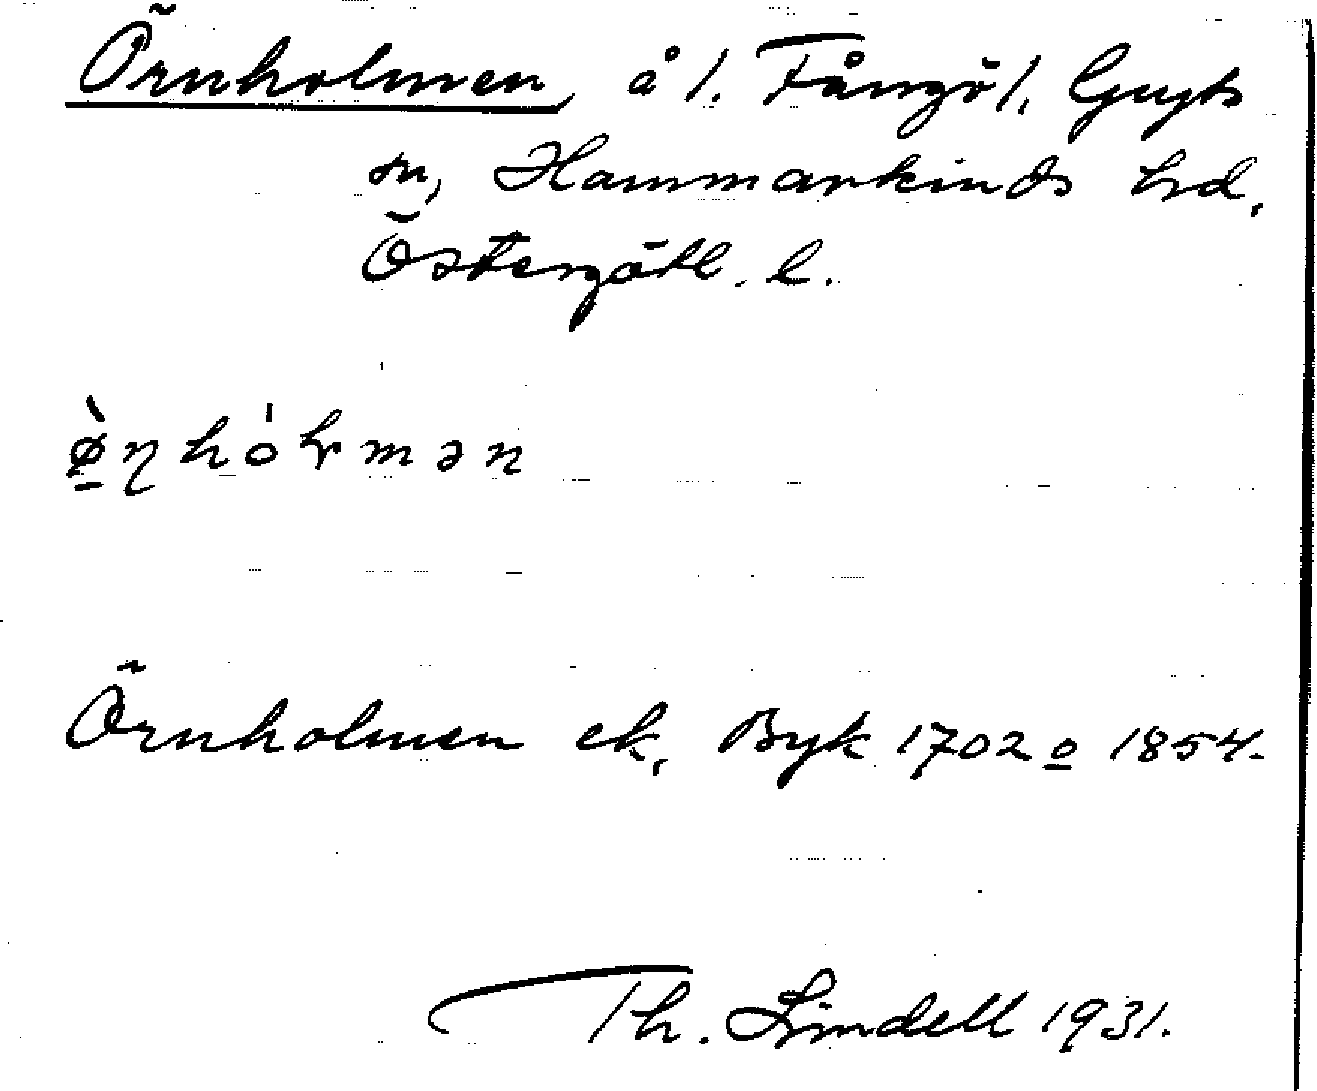 Örnholmen, å l. Fångö l. Gryts
sn, Hammarkinds hrd,
Östergötl. l.
Örnholmen ek, Byk 1702 o 1854.
Th. Lindell 1931.